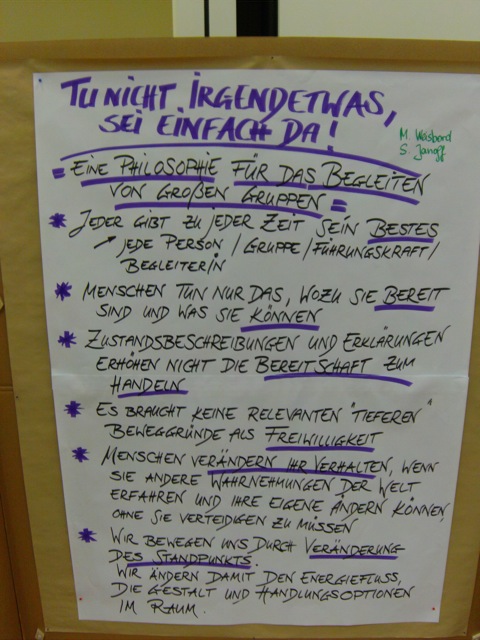 TU NICHT IRGENDETWAS,
SEI EINFACH DA!
M. Wasbord
S. Janoff
= EINE PHILOSOPHIE FÜR DAS BEGLEITEN
VON GROßEN GRUPPEN =
* JEDER GIBT ZU JEDER ZEIT SEIN BESTES
↗ JEDE PERSON / GRUPPE / FÜHRUNGSKRAFT /
BEGLEITER/IN
* MENSCHEN TUN NUR DAS, WOZU SIE BEREIT
SIND UND WAS SIE KÖNNEN
* ZUSTANDSBESCHREIBUNGEN UND ERKLÄRUNGEN
ERHÖHEN NICHT DIE BEREITSCHAFT ZUM
HANDELN
* ES BRAUCHT KEINE RELEVANTEN "TIEFEREN"
BEWEGGRÜNDE ALS FREIWILLIGKEIT
* MENSCHEN VERÄNDERN IHR VERHALTEN, WENN
SIE ANDERE WAHRNEHMUNGEN DER WELT
ERFAHREN UND IHRE EIGENE ÄNDERN KÖNNEN,
OHNE SIE VERTEIDIGEN ZU MÜSSEN
* WIR BEWEGEN UNS DURCH VERÄNDERUNG
DES STANDPUNKTS.
WIR ÄNDERN DAMIT DEN ENERGIEFLUSS,
DIE GESTALT UND HANDLUNGSOPTIONEN
IM RAUM.